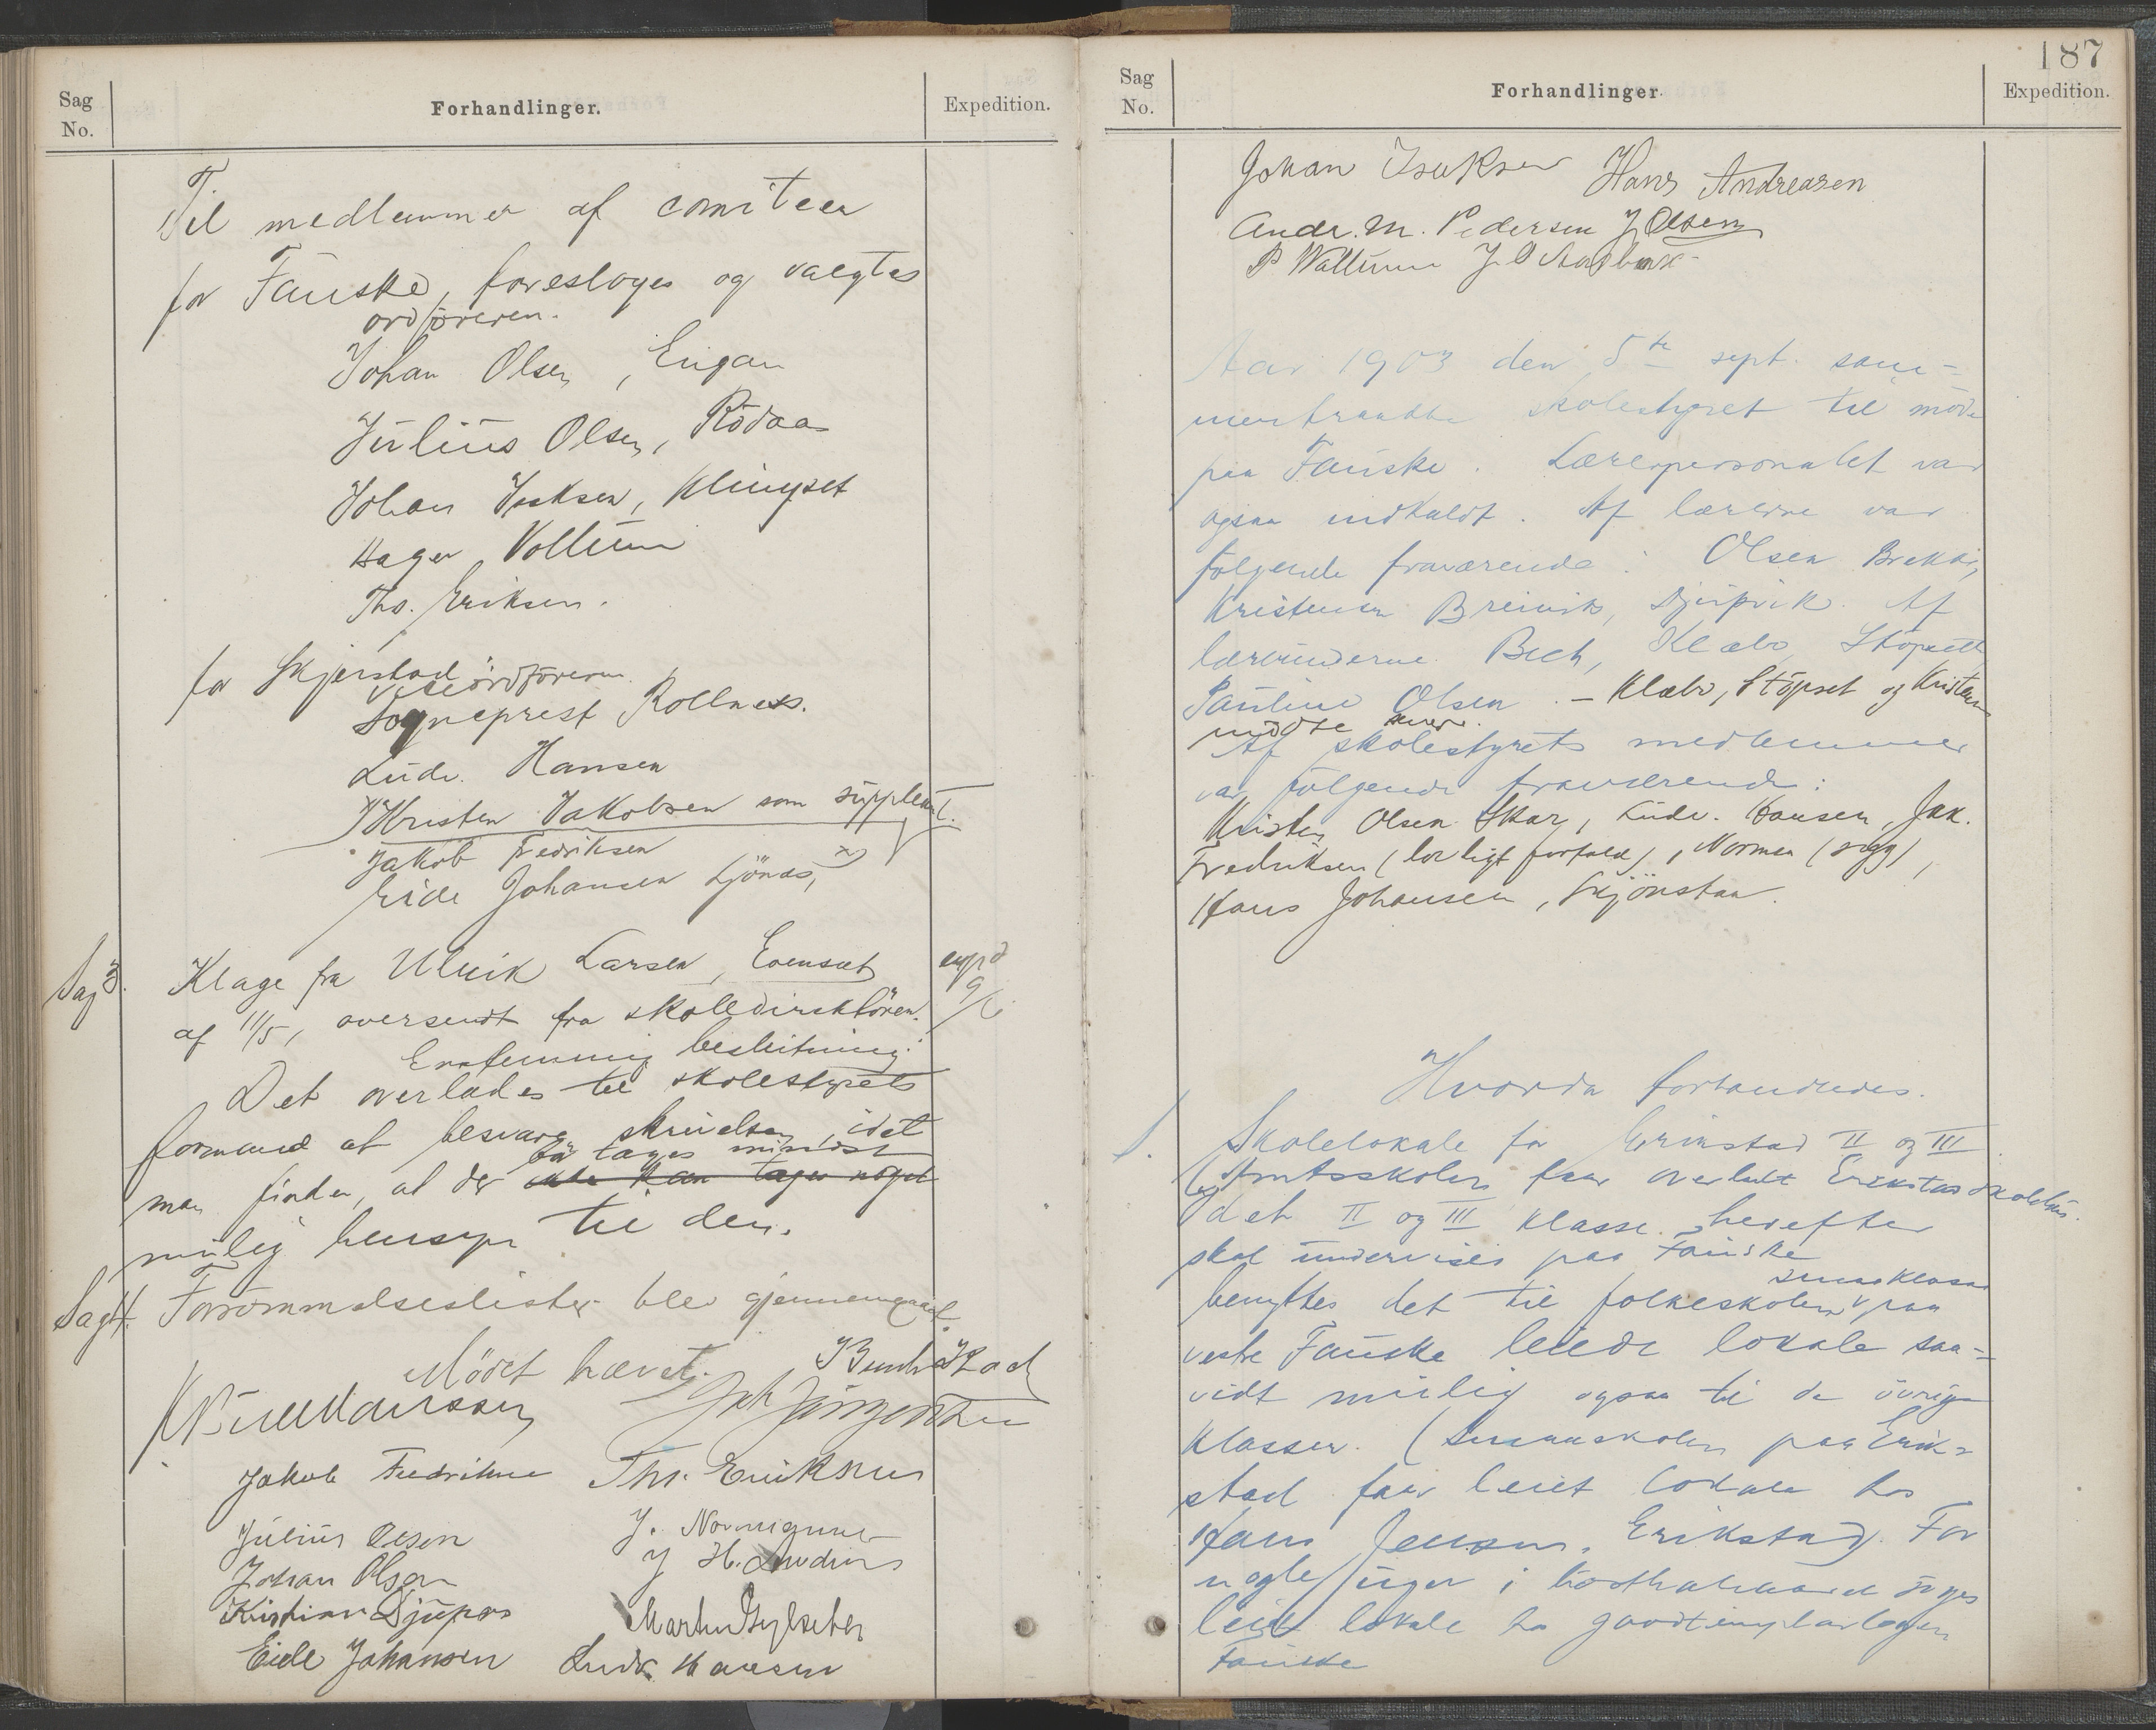 Sag No.
Forhandlinger.
Expedition.
Til medlemmer af comiteen
for Fauske, foresloges og valgtes
ordföreren.
Johan Olsen, Engan
Julius Olsen, Rödaas
Johan Isaksen, Klungset
Hager Vollum
Tho. Eriksen.
for Skjerstad
viseordföreren.
Sogneprest Rollness.
Ludv. Hansen
Kristen Jakobsen som suppleant.
Jakob Fredriksen
Eide Johansen Ljönes,
Sag 3. Klage fra Ulrik Larsen, Evensæt
expd 9/6
af 11/5, oversendt fra skoledirektören.
Enstemmig beslutning:
Det overlades til skolestyrets
formand at besvare skrivelsen, idet
bör tages mindst
man finder, at der ikke kan tages noget
mulig hensyn til den.
Sag 4. Forsömmelseslister blev gjennemgaaet.
Mödet hævet.
Jakob Fredriksen
Tho. Eriksen
Julius Olsen
Johan Olsen
Kristian Djupos
Eide Johansen
Ludv. Hansen
187
Sag No.
Forhandlinger.
Expedition.
Johan Isaksen Hans Andreasen
Andr. M. Pedersen J Olsen
P Wattum
Aar 1903 den 5te sept. sam-
mentraadte skolestyret til möde
paa Fauske. Lærerpersonalet var
ogsaa indkaldt. Af lærerne var
følgende fraværende: Olsen Brekke,
Kristensen Breivik, Djupvik. Af
lærerinderne Bech, Klæbo, Stöpsett
Pauline Olsen. - Klæbo, Stöpset og Kristensen
mödte senere.
Af skolestyrets medlemmer
var fölgende fraværende:
Kristen Olsen Skar, Ludv. Hansen, Jak.
Fredriksen (lovligt forfald), Norman (syg),
Hans Johansen, Skjönstaa.
Hvorda forhandledes.
1. Skolelokale for Erikstad II og III
Amtsskolen faar overladt Erikstad skolehus.
da II og III klasse herefter
skal undervises paa Fauske
smaaklasse
benyttes det til folkeskolen paa
vestre Fauske leiede lokale saa-
vidt mulig ogsaa til de övrige
klasser. (Smaaskolen paa Erik-
stad faar leiet lokale hos
Hans Jensen, Erikstad). For
nogle uger i hösthalvaaret söges
leiet lokale hos goodtemplarlogen
Fauske